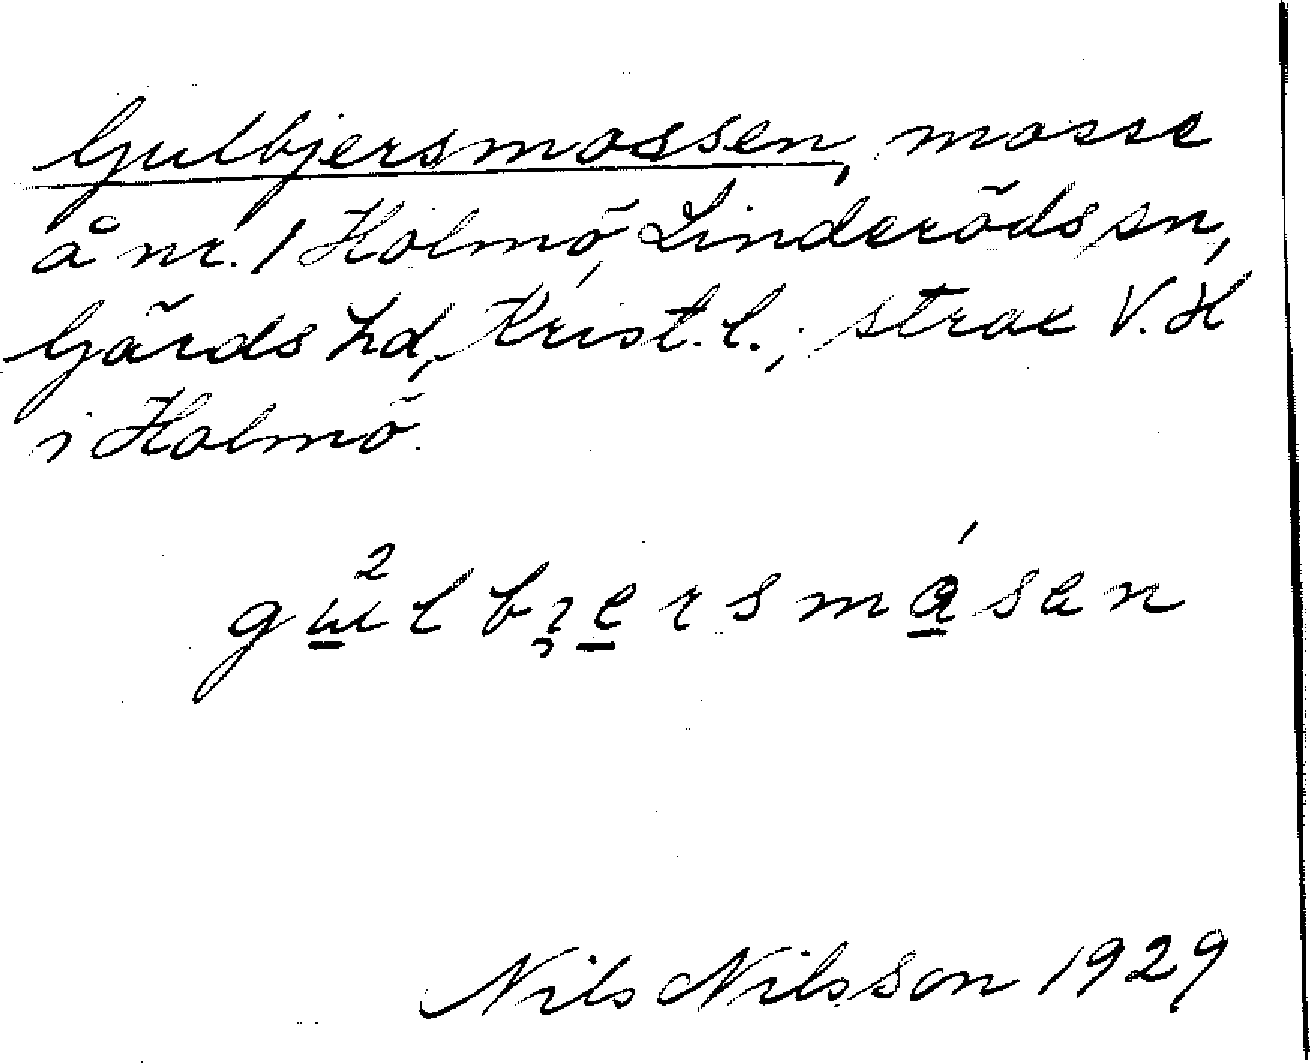 Gulbjersmossen, mosse
å nr. 1 Holmö, Linderöds sn,
Gärds hd, Krist. l.; strax V. H
i Holmö.
gu²lbjersmásen
Nils Nilsson 1929